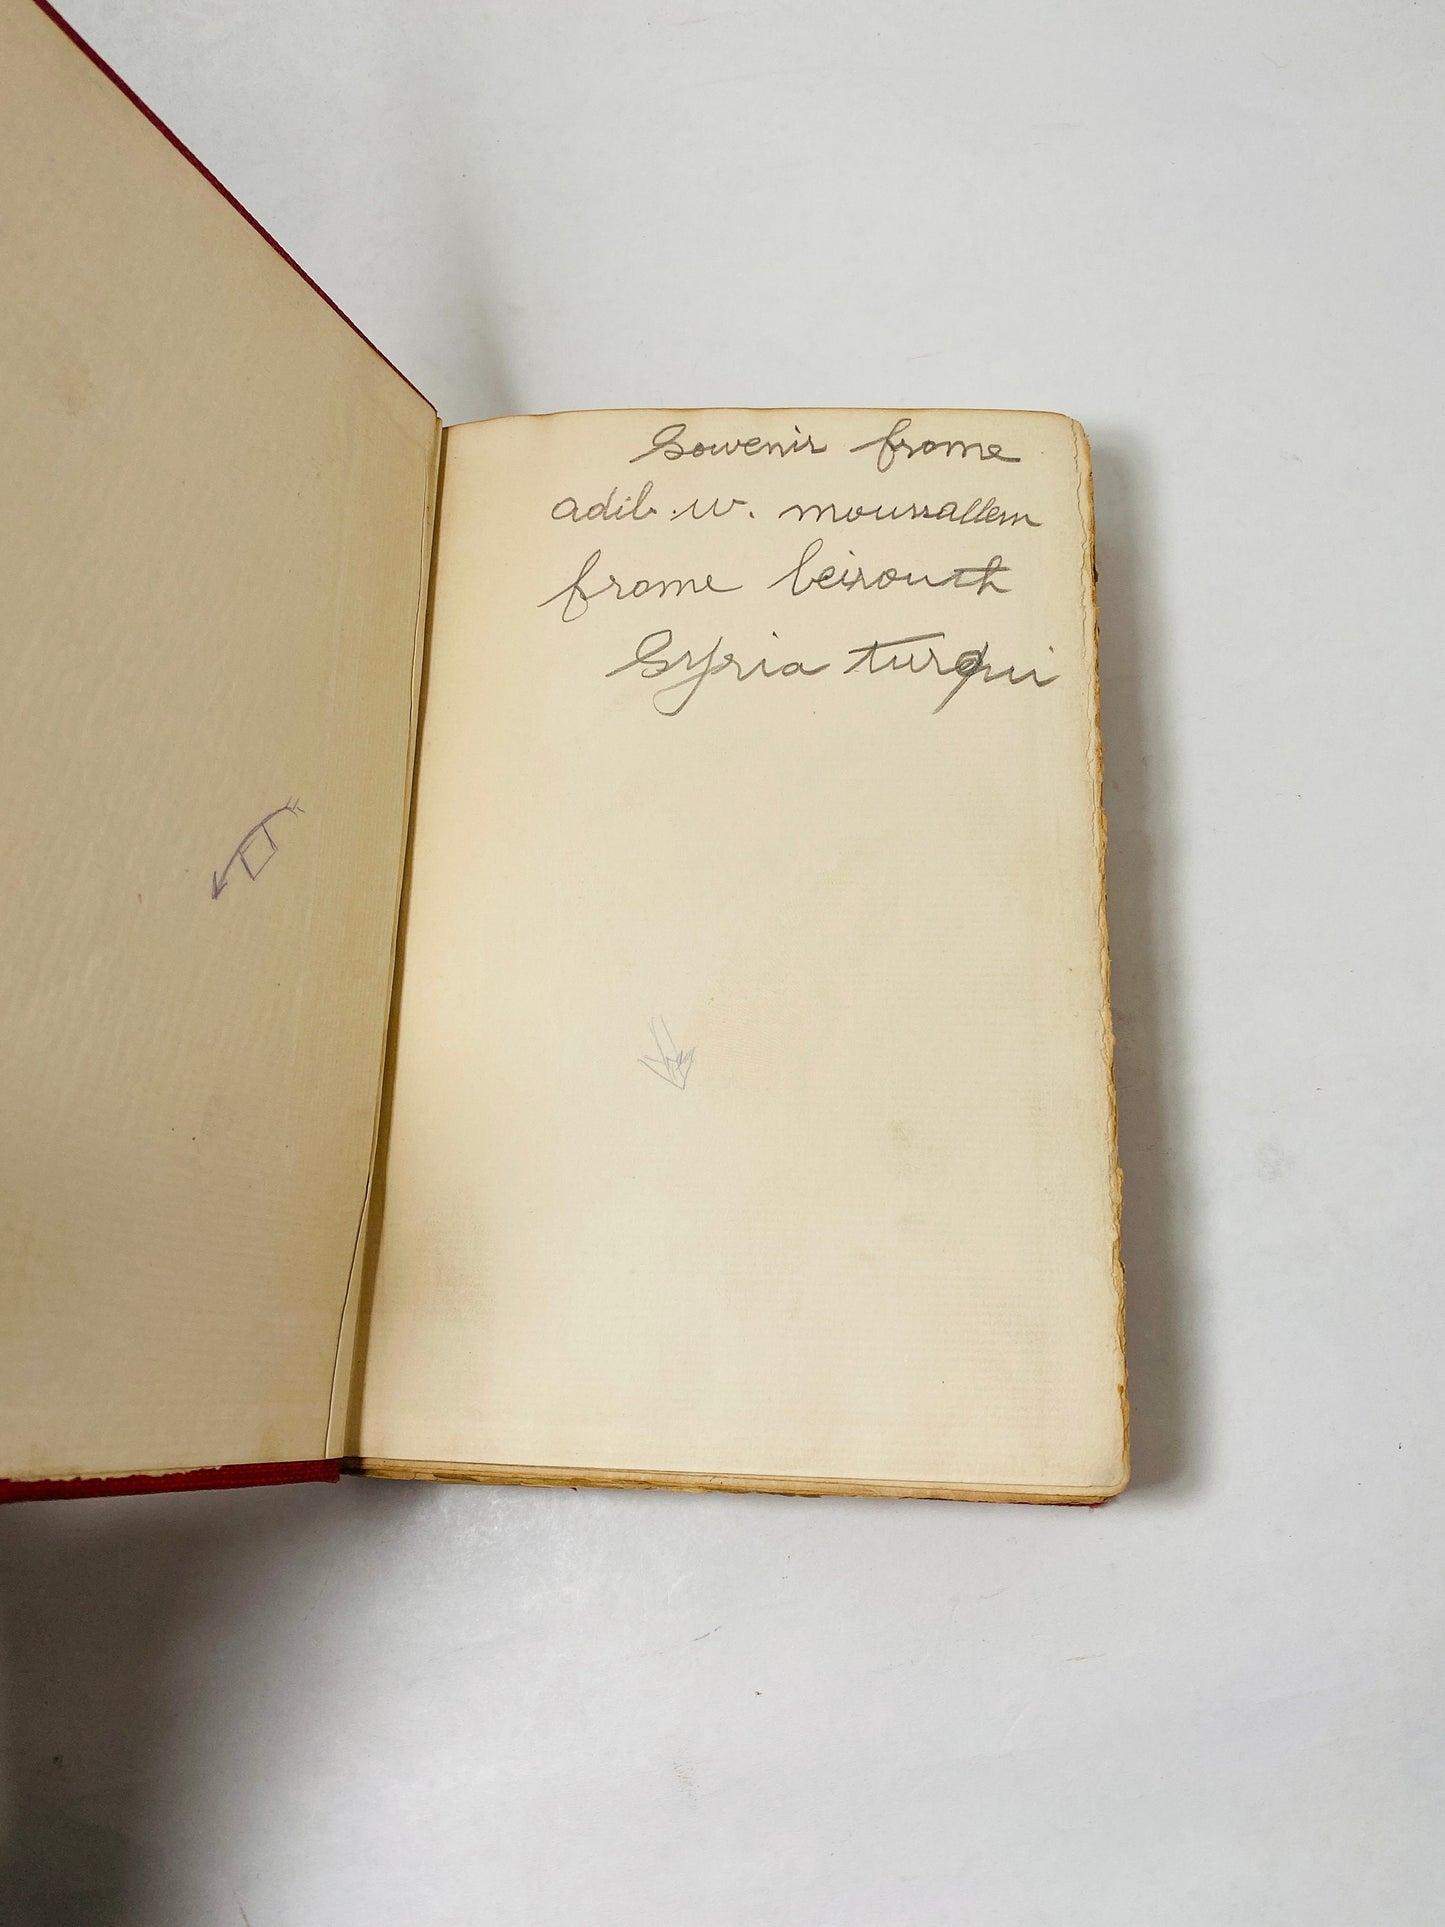 Sovenir frome
adib. w. moussallem
frome beirouth
Syria turqui